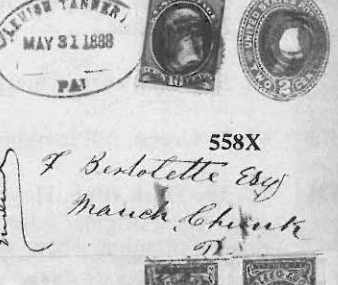 LEHIGH TANNERY
MAY 31 1888
PA
10
UNITED STATES
TWO 2 CTS
558X
F Bertolette Esq
Mauch Chunk
Pa